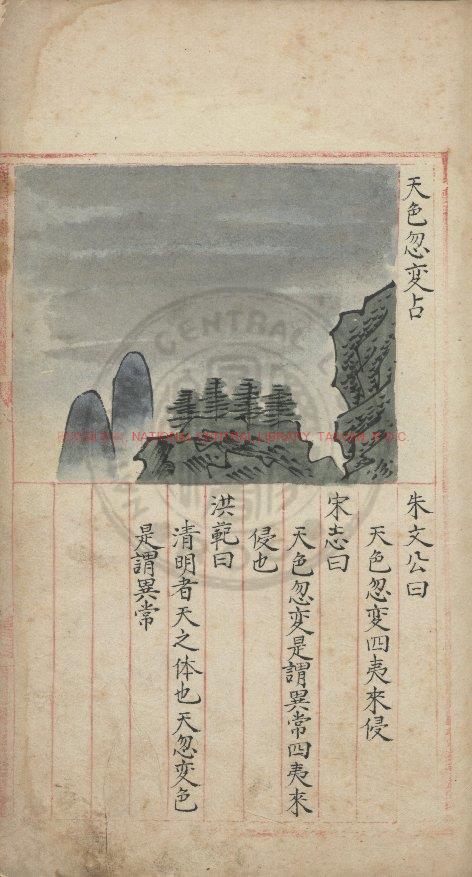 天色忽变占
朱文公曰
天色忽变四夷来侵
宋志曰
天色忽变是謂異常四夷来
侵也
洪範曰
清明者天之体也天忽变色
是謂異常
NATIONAL CENTRAL LIBRARY, TAIWAN, R.O.C.